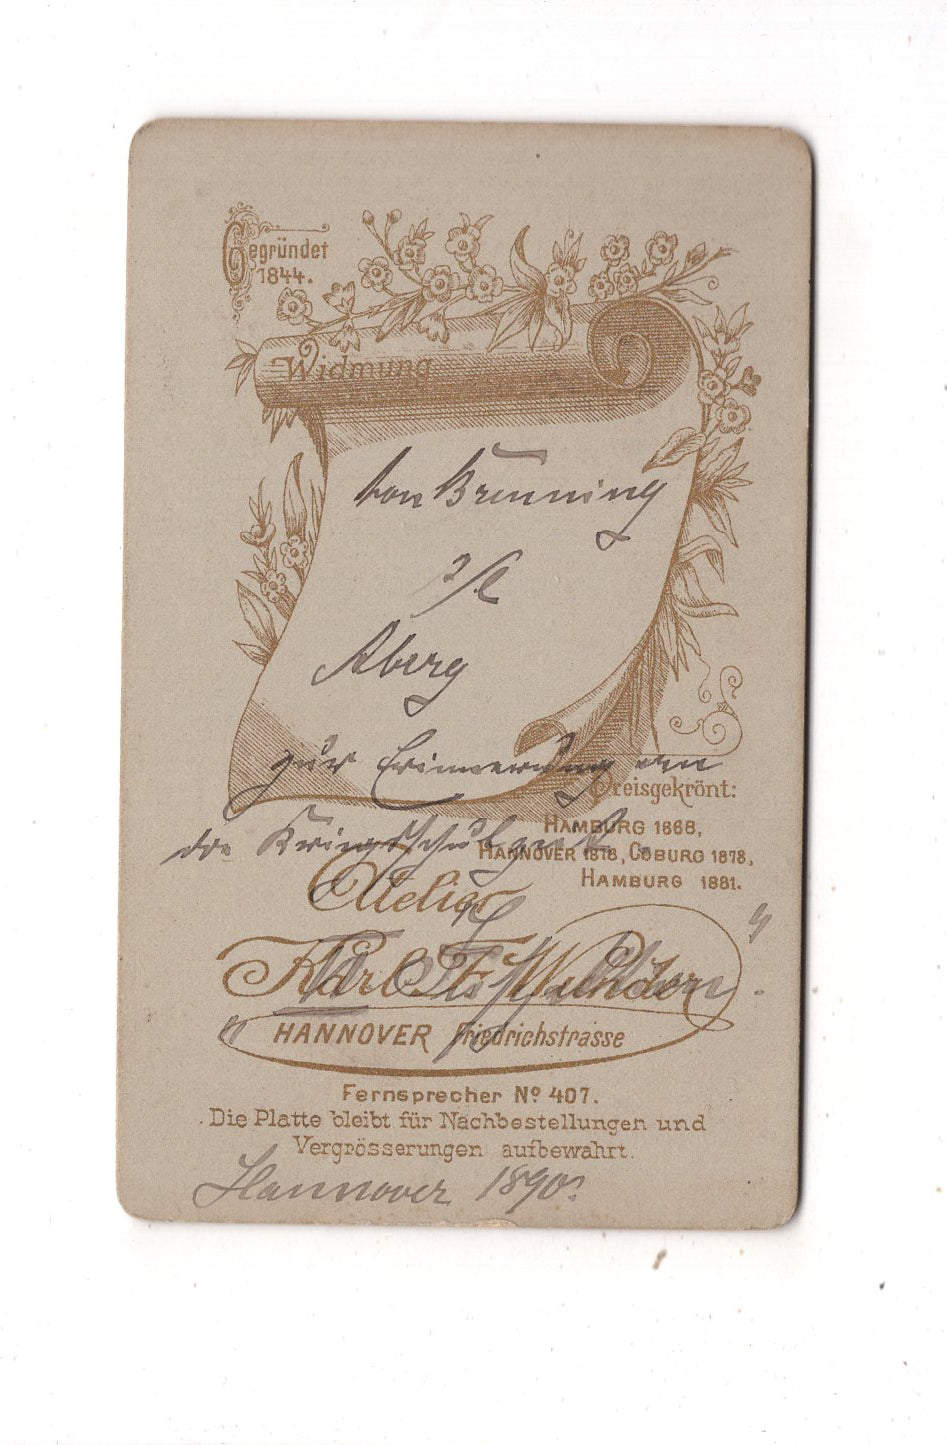 Gegründet
1844.
Widmung
von Brünning
s/l
Aberg
zur Erinnerung an
Preisgekrönt:
die Kriegsschulzeit.
HAMBURG 1868,
HANNOVER 1878, COBURG 1878,
HAMBURG 1881.
Atelier
Karl F. Wunder
HANNOVER Friedrichstrasse
Fernsprecher No 407.
Die Platte bleibt für Nachbestellungen und
Vergrösserungen aufbewahrt.
Hannover 1890.